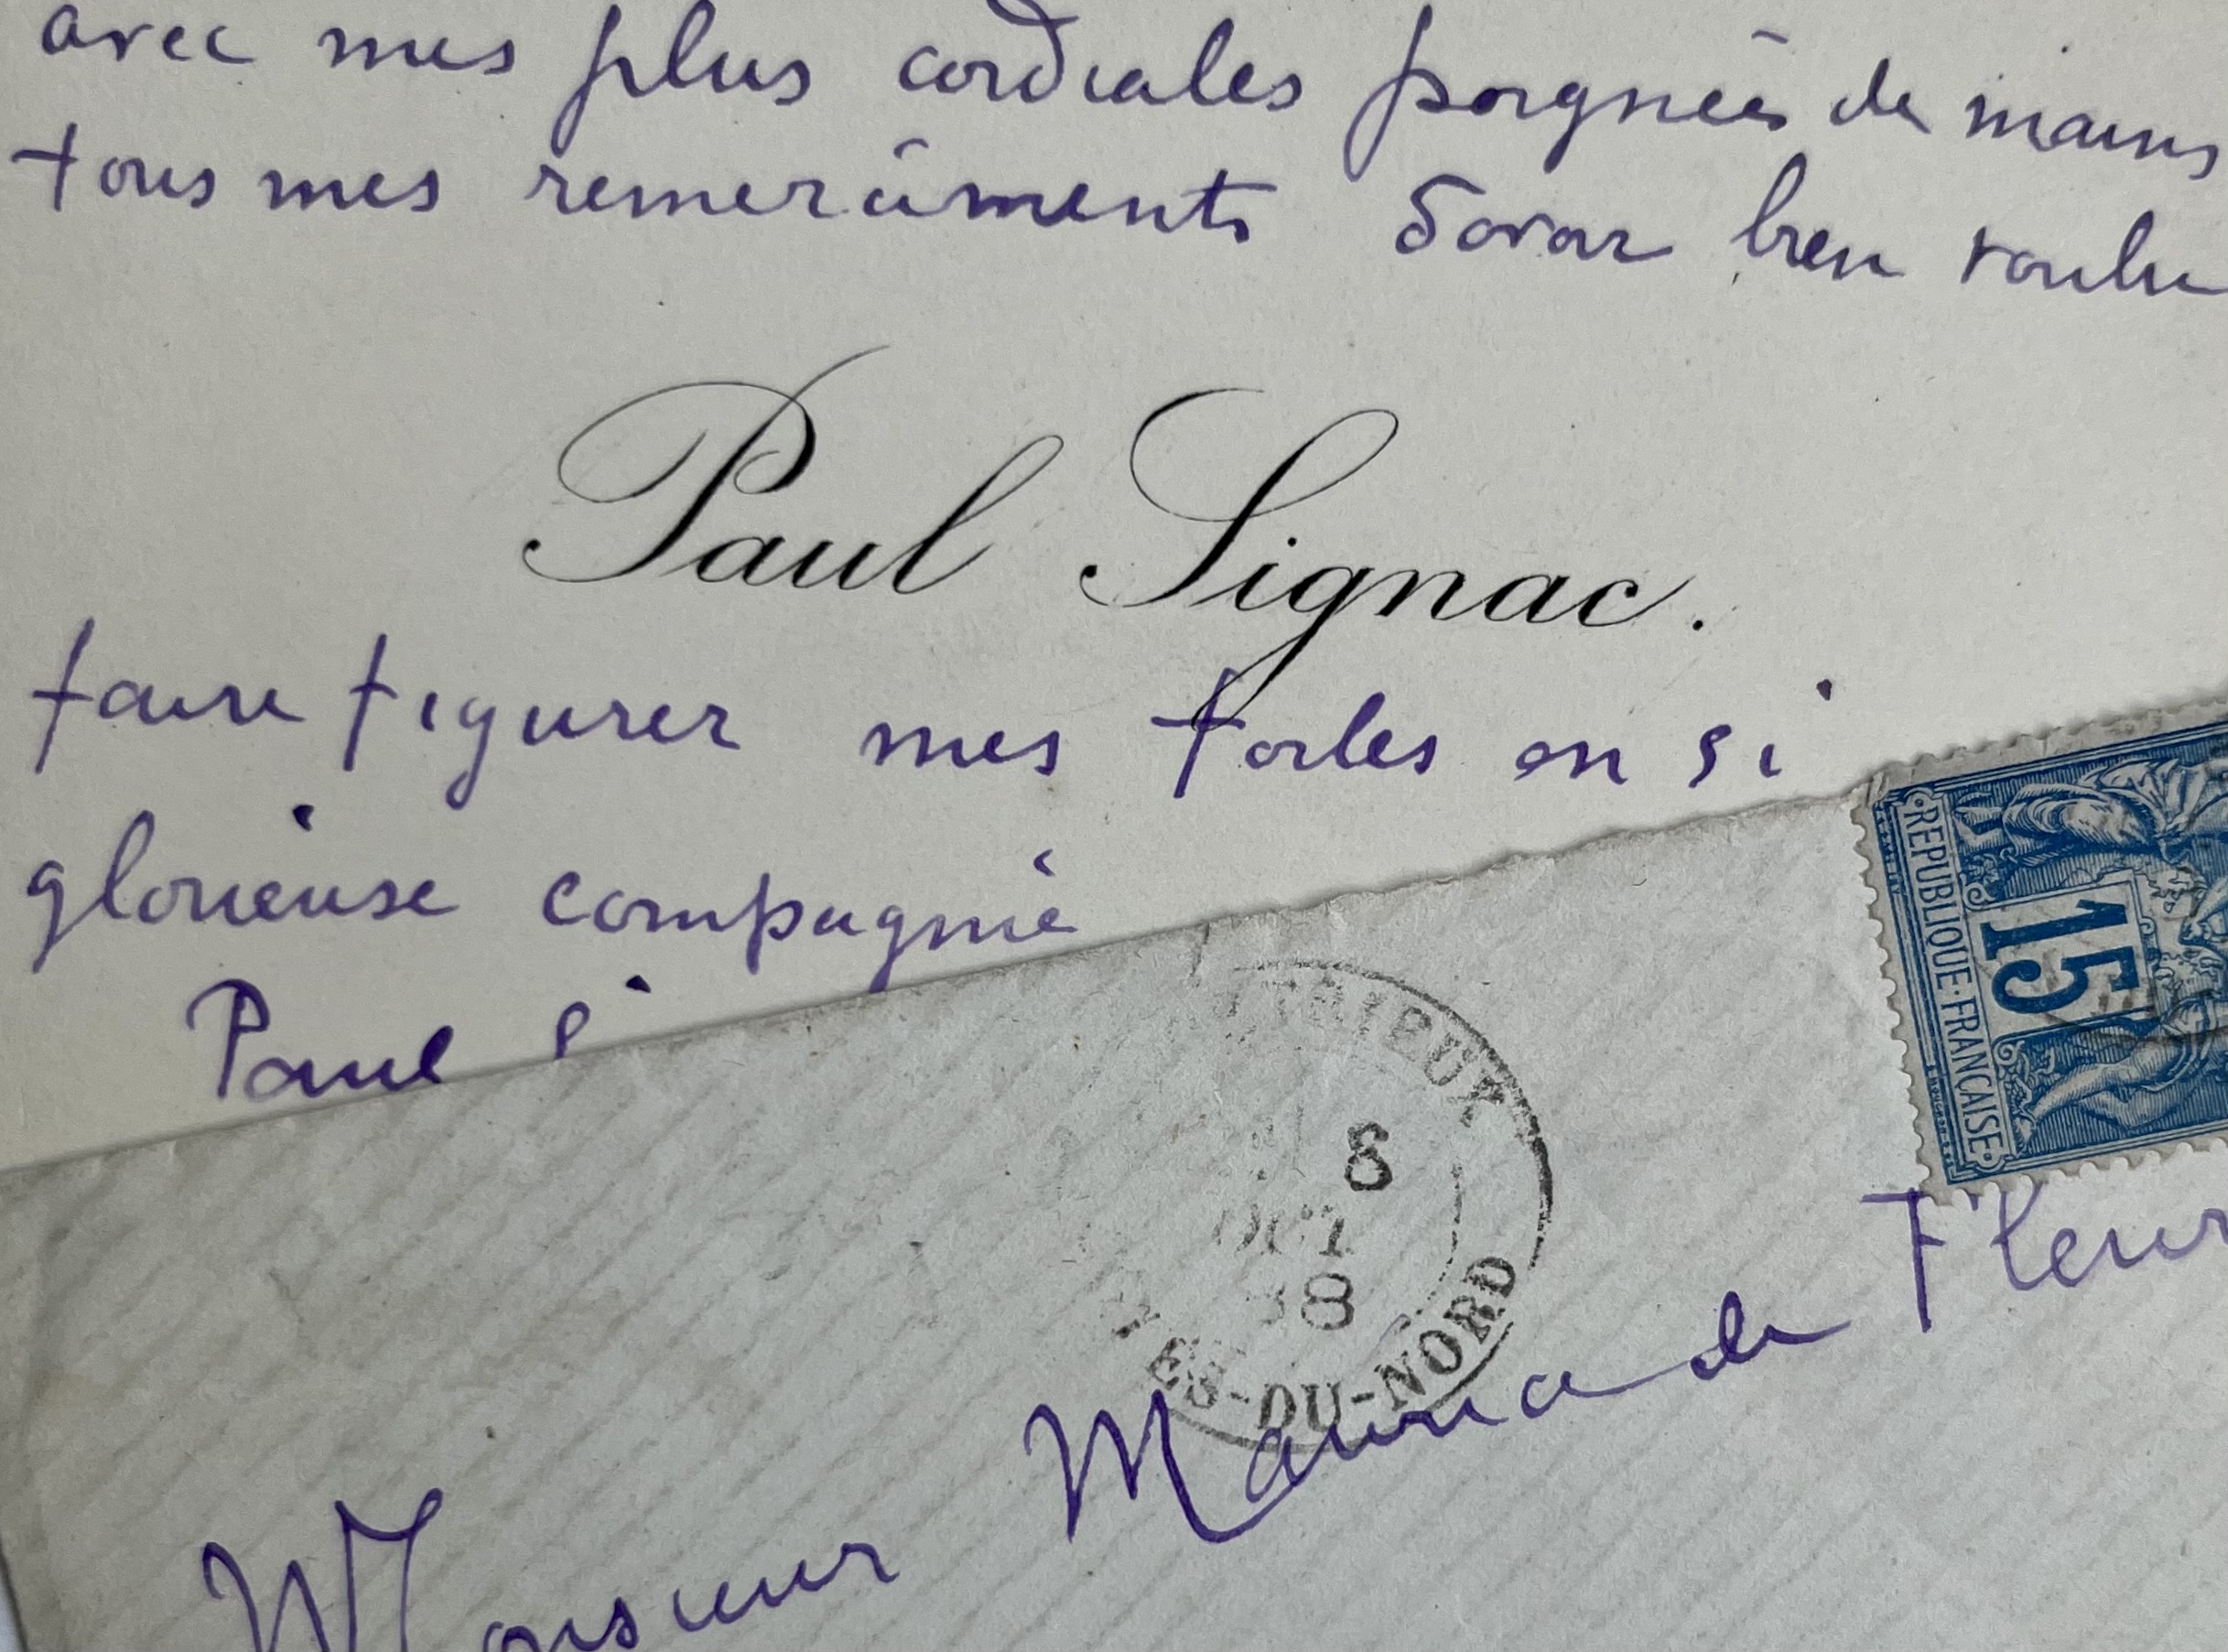 avec mes plus cordiales poignées de mains
tous mes remerciments d'avoir bien voulu
Paul Signac.
faire figurer mes toiles en si
glorieuse compagnie
Paul
REPUBLIQUE·FRANCAISE
15
TRIEUX
8
OCT
88
TES-DU-NORD
Monsieur Maurice de Fleur